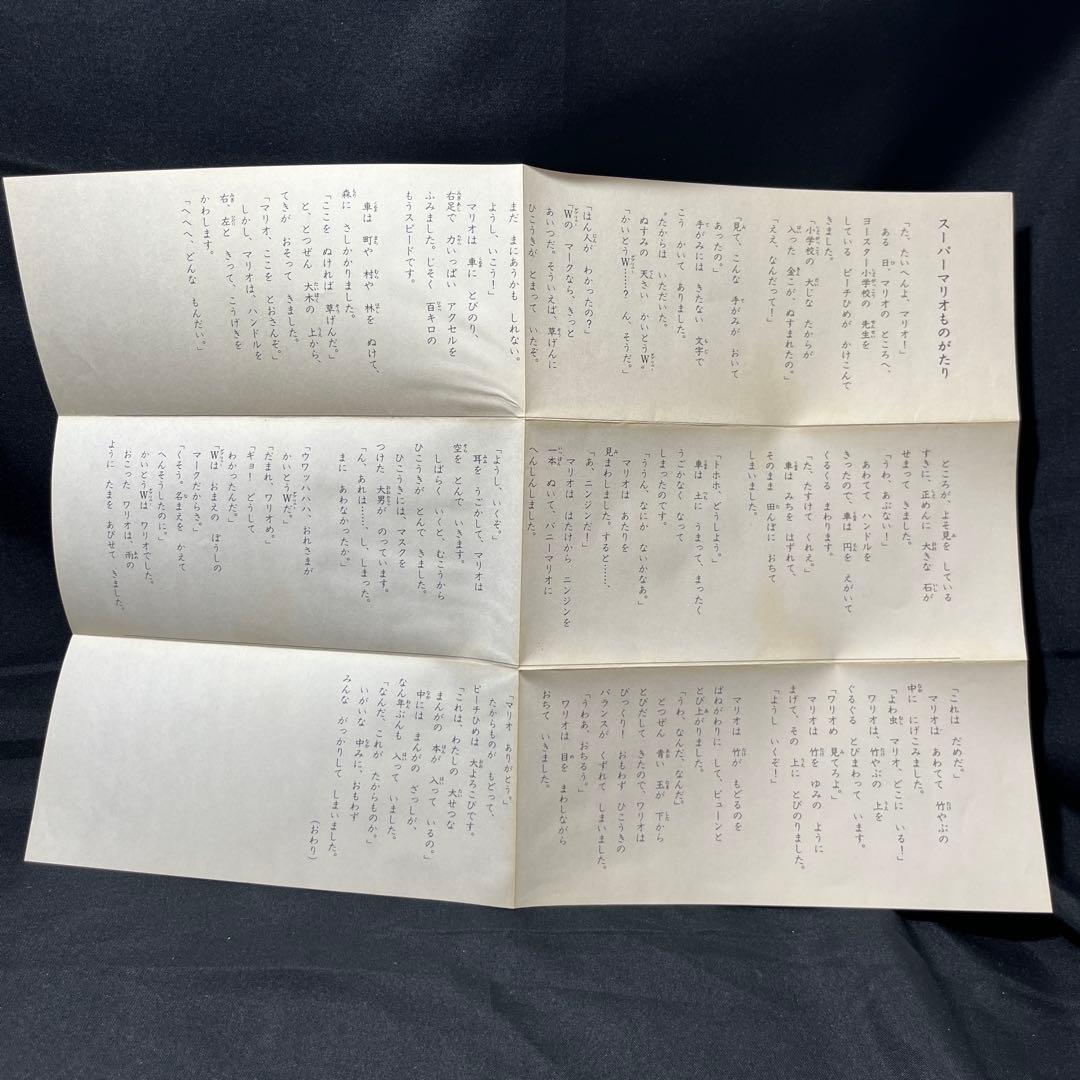 スーパーマリオものがたり
「た、たいへんよ、マリオ！」
ある 日、マリオの ところへ、
ヨースター小学校の 先生を
している ピーチひめが かけこんで
きました。
「小学校の 大じな たからが
入った 金こが、ぬすまれたの。」
「ええ、なんだって！」
「見て、こんな 手がみが おいて
あったの。」
手がみには きたない 文字で
こう かいて ありました。
“たからは いただいた。
ぬすみの 天さい かいとうW。”
「かいとうW……？ ん、そうだ。」
「はん人が わかったの？」
「Wの マークなら、きっと
あいつだ。そういえば、草げんに
ひこうきが とまって いたぞ。
まだ まにあうかも しれない。
ようし、いこう！」
マリオは 車に とびのり、
右足で 力いっぱい アクセルを
ふみました。じそく 百キロの
もうスピードです。
車は 町や 村や 林を ぬけて、
森に さしかかりました。
「ここを ぬければ 草げんだ。」
と、とつぜん 大木の 上から、
てきが おそって きました。
「マリオ、ここを とおさんぞ。」
しかし、マリオは、ハンドルを
右、左と きって、こうげきを
かわします。
「へへへ、どんな もんだい。」
ところが、よそ見を している
すきに、正めんに 大きな 石が
せまって きました。
「うわ、あぶない！」
あわてて ハンドルを
きったので、車は 円を えがいて
くるくる まわります。
「た、たすけて くれえ。」
車は みちを はずれて、
そのまま 田んぼに おちて
しまいました。
「トホホ、どうしよう。」
車は 土に うまって、まったく
うごかなく なって
しまったのです。
「ううん、なにか ないかなあ。」
マリオは あたりを
見まわしました。すると……、
「あ、ニンジンだ！」
マリオは はたけから ニンジンを
一本 ぬいて、バニーマリオに
へんしんしました。
「ようし、いくぞ。」
耳を うごかして、マリオは
空を とんで いきます。
しばらく いくと、むこうから
ひこうきが とんで きました。
ひこうきには、マスクを
つけた 大男が のっています。
「ん、あれは……。し、しまった。
まに あわなかったか。」
「ウワッハハハ、おれさまが
かいとうWだ。」
「だまれ、ワリオめ。」
「ギョー、どうして
わかったんだ。」
「Wは おまえの ぼうしの
マークだからさ。」
「くそう。名まえを かえて
へんそうしたのに。」
かいとうWは ワリオでした。
おこった ワリオは、雨の
ように たまを あびせて きました。
「これは だめだ。」
マリオは あわてて 竹やぶの
中に にげこみました。
「よわ虫 マリオ、どこに いる！」
ワリオは、竹やぶの 上を
ぐるぐる とびまわって います。
「ワリオめ 見てろよ。」
マリオは 竹を ゆみの ように
まげて、その 上に とびのりました。
「ようし いくぞ！」
マリオは 竹が もどるのを
ばねがわりに して、ピューンと
とび上がりました。
「うわ、なんだ、なんだ」
とつぜん 青い 玉が 下から
とびだして きたので、ワリオは
びっくり！ おもわず ひこうきの
バランスが くずれて しまいました。
「うわあ、おちるう。」
ワリオは 目を まわしながら
おちて いきました。
「マリオ ありがとう。」
たからものが もどって、
ピーチひめは 大よろこびです。
「これは、わたしの 大せつな
まんがの 本が 入って いるの。」
中には まんがの ざっしが、
なん年ぶんも 入って いました。
「なんだ、これが たからものか。」
いがいな 中みに、おもわず
みんな がっかりして しまいました。
（おわり）